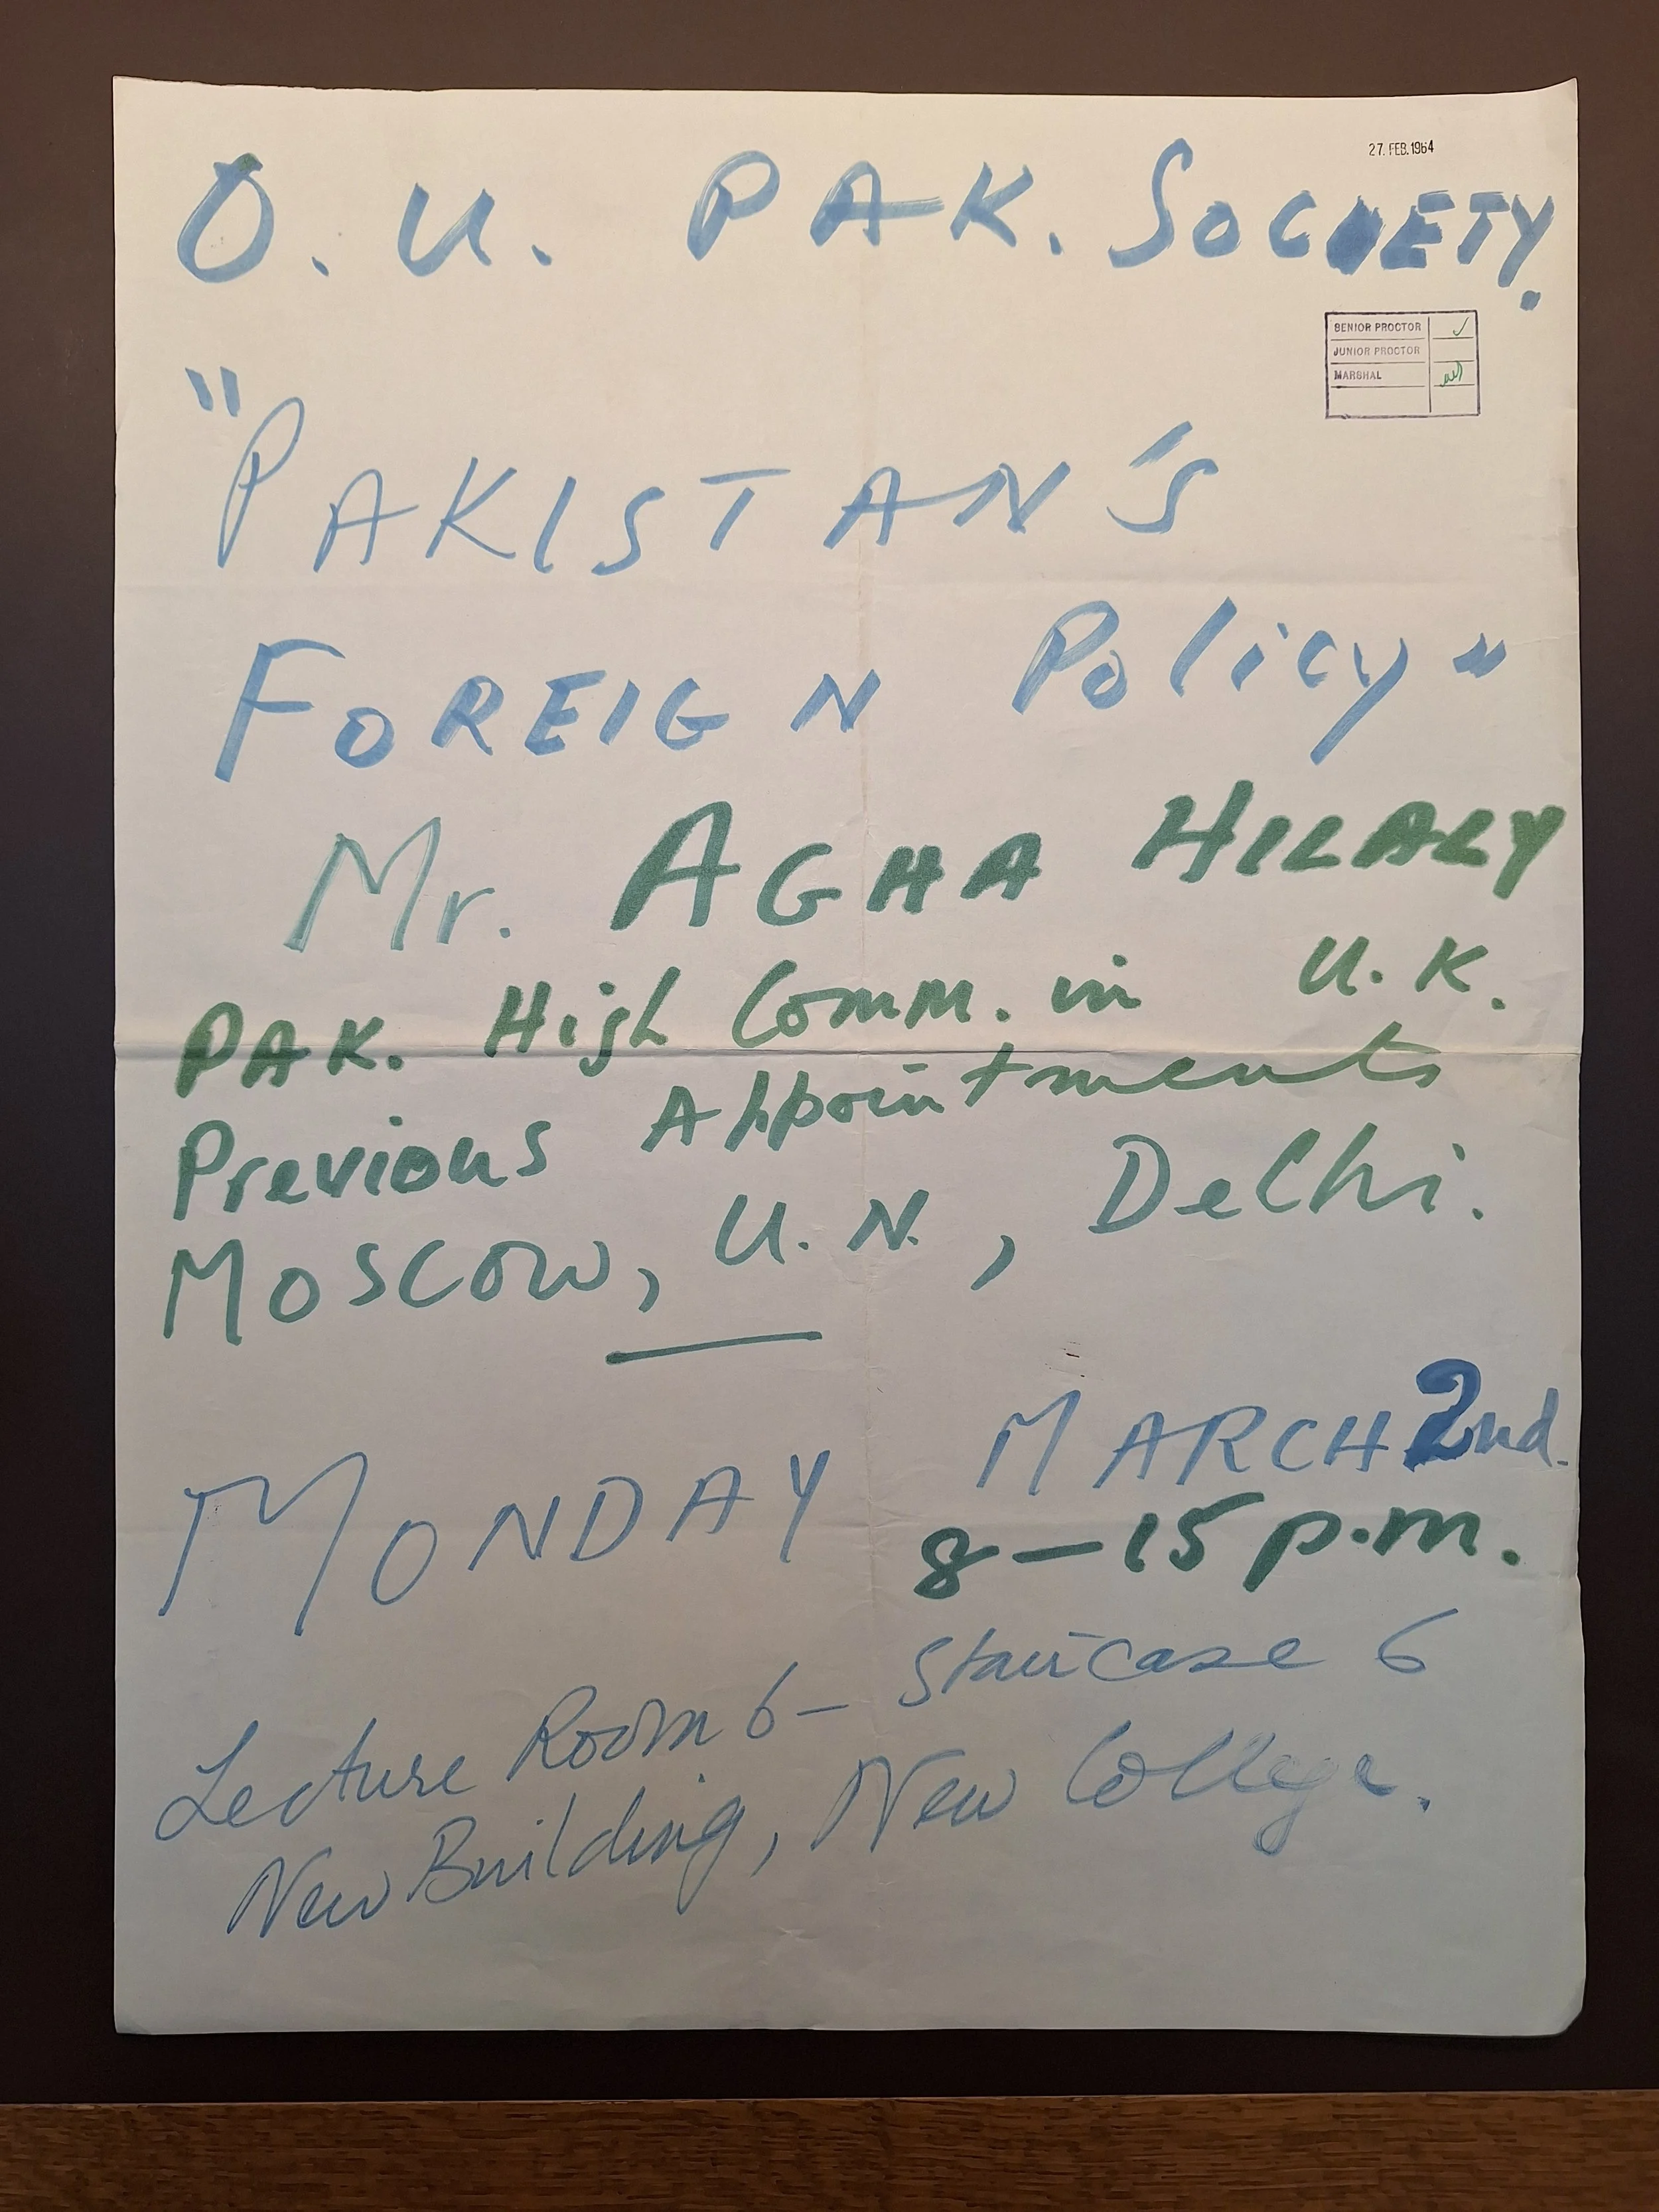 27. FEB. 1964
O. U. PAK. SOCIETY.
SENIOR PROCTOR
JUNIOR PROCTOR
MARSHAL
"PAKISTAN'S
FOREIGN Policy"
Mr. AGHA HILALY
PAK. High Comm. in U.K.
Previous Appointments
Moscow, U.N., Delhi.
MONDAY MARCH 2nd.
8-15 p.m.
Lecture Room 6 - Staircase 6
New Building, New College.